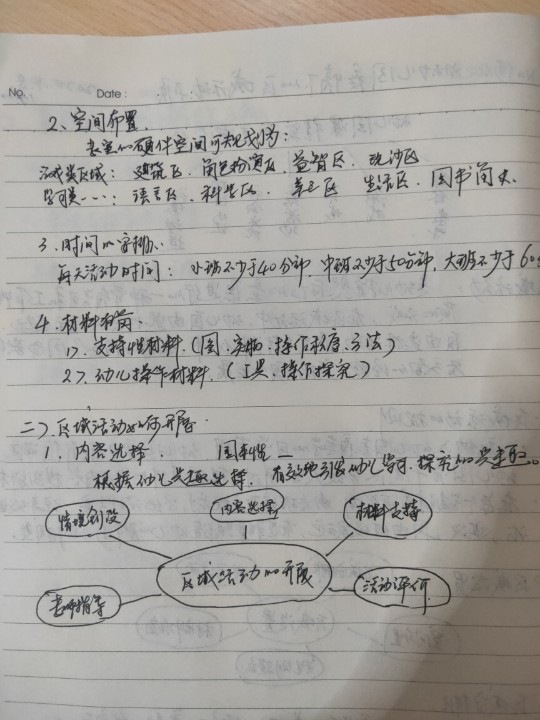 No.
Date :
2、空间布置.
教室的硬件空间可规划为:
游戏类区域: 建筑区、角色扮演区、益智区、玩沙区
学习类……: 语言区、科学区、美工区 生活区、图书
3. 时间的安排.
每天活动时间: 小班不少于40分钟、中班不少于50分钟, 大班不少于60
4. 材料
1>. 支持性材料.(图、实物、操作程序、方法)
2>. 幼儿操作材料.(工具、操作探究)
二) 区域活动如何开展.
1. 内容选择.
根据幼儿兴趣选择, 有效地引发幼儿学习、探究的兴趣。
情境创设
内容选择
材料支持
区域活动的开展
老师指导
活动评价